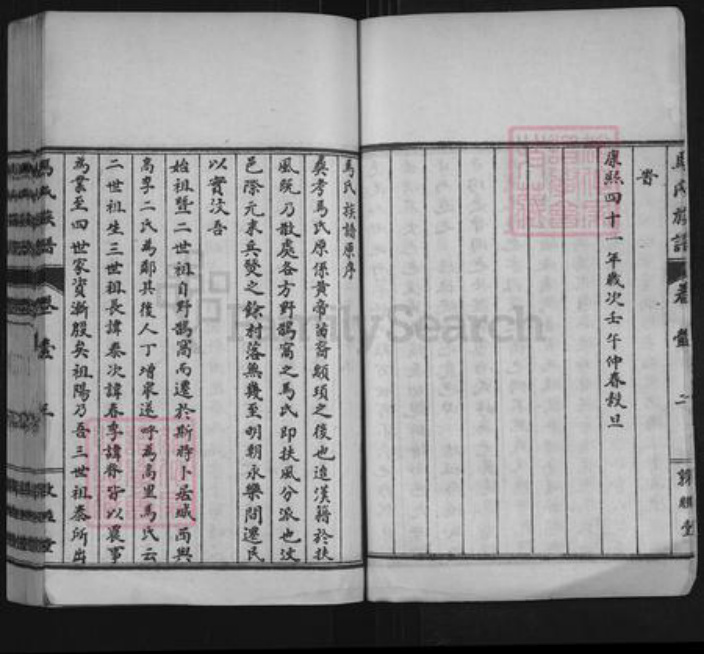 馬氏族譜 卷壹 二
眷
康熙四十一年歲次壬午仲春穀旦
馬氏族譜原序
奠考馬氏原係黃帝苗裔顓頊之後也迨漢籍於扶
風既乃散處各方野鵲窩之馬氏即扶風分派也汶
邑際元末兵燹之餘村落無幾至明朝永樂間遷民
以實汶吾
始祖暨二世祖自野鵲窩而遷於斯將卜居咸而與
高李二氏為鄰其後人丁增眾遂呼為高里馬氏云
二世祖生三世祖長諱泰次諱春季諱眷皆以農事
為業至四世家資漸殷矣祖陽乃吾三世祖泰所出
馬氏族譜 卷壹 三
FamilySearch